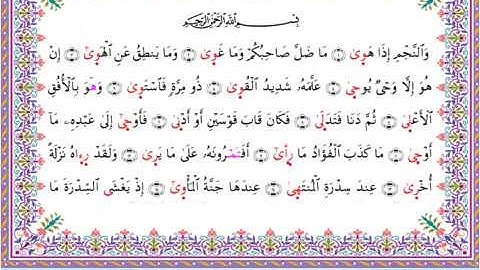 بِسْمِ ٱللَّهِ ٱلرَّحْمَٰنِ ٱلرَّحِيمِ
وَٱلنَّجْمِ إِذَا هَوَىٰ ۝ مَا ضَلَّ صَاحِبُكُمْ وَمَا غَوَىٰ ۝ وَمَا يَنطِقُ عَنِ ٱلْهَوَىٰٓ ۝ إِنْ
هُوَ إِلَّا وَحْىٌ يُوحَىٰ ۝ عَلَّمَهُۥ شَدِيدُ ٱلْقُوَىٰ ۝ ذُو مِرَّةٍ فَٱسْتَوَىٰ ۝ وَهُوَ بِٱلْأُفُقِ
ٱلْأَعْلَىٰ ۝ ثُمَّ دَنَا فَتَدَلَّىٰ ۝ فَكَانَ قَابَ قَوْسَيْنِ أَوْ أَدْنَىٰ ۝ فَأَوْحَىٰٓ إِلَىٰ عَبْدِهِۦ مَآ
أَوْحَىٰ ۝ مَا كَذَبَ ٱلْفُؤَادُ مَا رَأَىٰٓ ۝ أَفَتُمَٰرُونَهُۥ عَلَىٰ مَا يَرَىٰ ۝ وَلَقَدْ رَءَاهُ نَزْلَةً
أُخْرَىٰ ۝ عِندَ سِدْرَةِ ٱلْمُنتَهَىٰ ۝ عِندَهَا جَنَّةُ ٱلْمَأْوَىٰٓ ۝ إِذْ يَغْشَى ٱلسِّدْرَةَ مَا